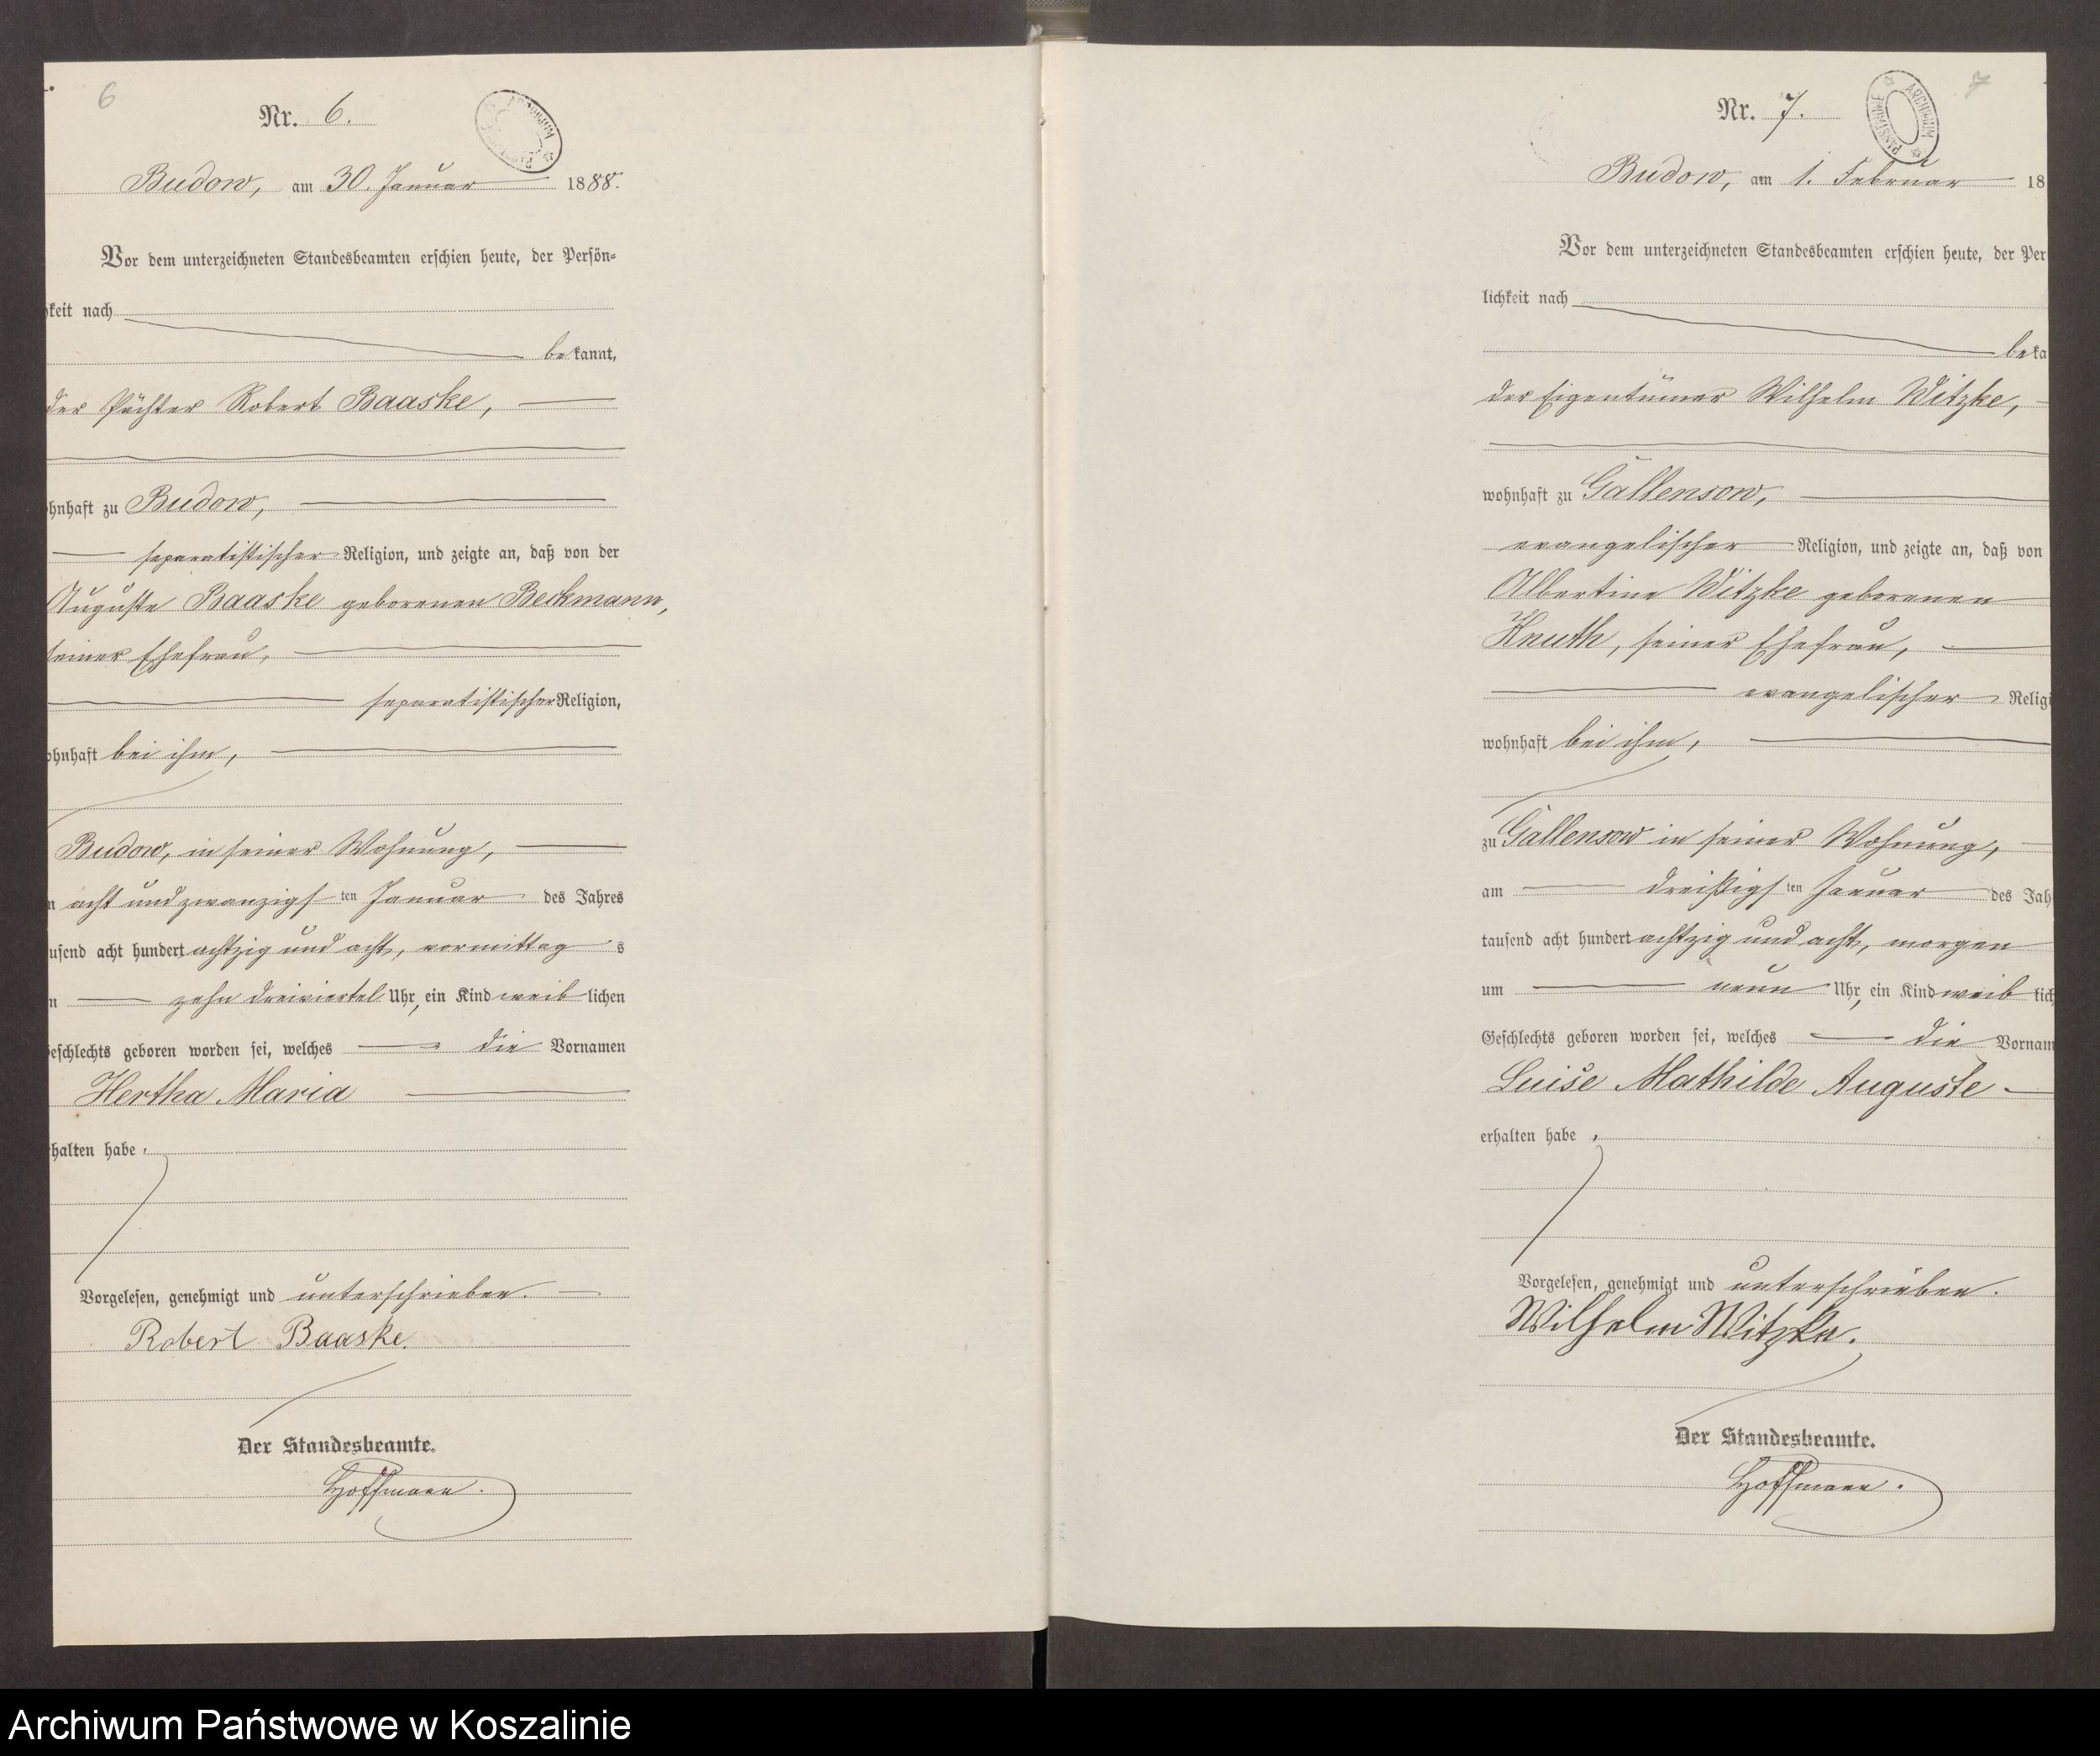 6
Nr. 6.
Budow, am 30. Januar 1888.
Vor dem unterzeichneten Standesbeamten erschien heute, der Persön=
keit nach
bekannt,
der Pächter Robert Baaske,
hnhaft zu Budow,
separatistischer Religion, und zeigte an, daß von der
Auguste Baaske geborenen Beckmann,
seiner Ehefrau,
separatistischer Religion,
ohnhaft bei ihm,
Budow, in seiner Wohnung,
acht und zwanzigsten Januar des Jahres
usend acht hundert achtzig und acht, vormittags
zehn dreiviertel Uhr, ein Kind weiblichen
eschlechts geboren worden sei, welches die Vornamen
Hertha Maria
halten habe.
Vorgelesen, genehmigt und unterschrieben.
Robert Baaske.
Der Standesbeamte.
Hoffmann.
7
Nr. 7.
ARCHIWUM PAŃSTWOWE
Budow, am 1. Februar 18
Vor dem unterzeichneten Standesbeamten erschien heute, der Per
lichkeit nach
beka
der Eigentümer Wilhelm Witzke,
wohnhaft zu Gallensow,
evangelischer Religion, und zeigte an, daß von
Albertine Witzke geborenen
Knuth, seiner Ehefrau,
evangelischer Religi
wohnhaft bei ihm,
zu Gallensow in seiner Wohnung,
am dreißigsten Januar des Jah
tausend acht hundert achtzig und acht, morgen
um neun Uhr, ein Kind weiblich
Geschlechts geboren worden sei, welches die Vornam
Luise Mathilde Auguste
erhalten habe.
Vorgelesen, genehmigt und unterschrieben.
Wilhelm Witzke.
Der Standesbeamte.
Hoffmann.
Archiwum Państwowe w Koszalinie